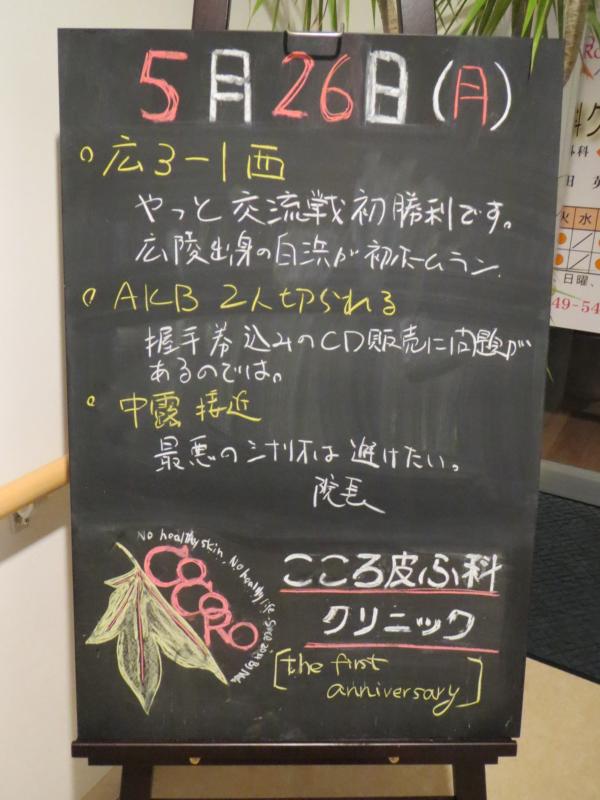 5月26日(月)
広3-1西
やっと交流戦初勝利です。
広陵出身の白浜が初ホームラン.
AKB 2人切られる
握手券込みのCD販売に問題が
あるのでは。
中露接近
最悪のシナリオは避けたい。
院長
No healthy skin, No healthy life.
CoCoRo
こころ皮ふ科
クリニック
[the first
anniversary]
火 水
49-54